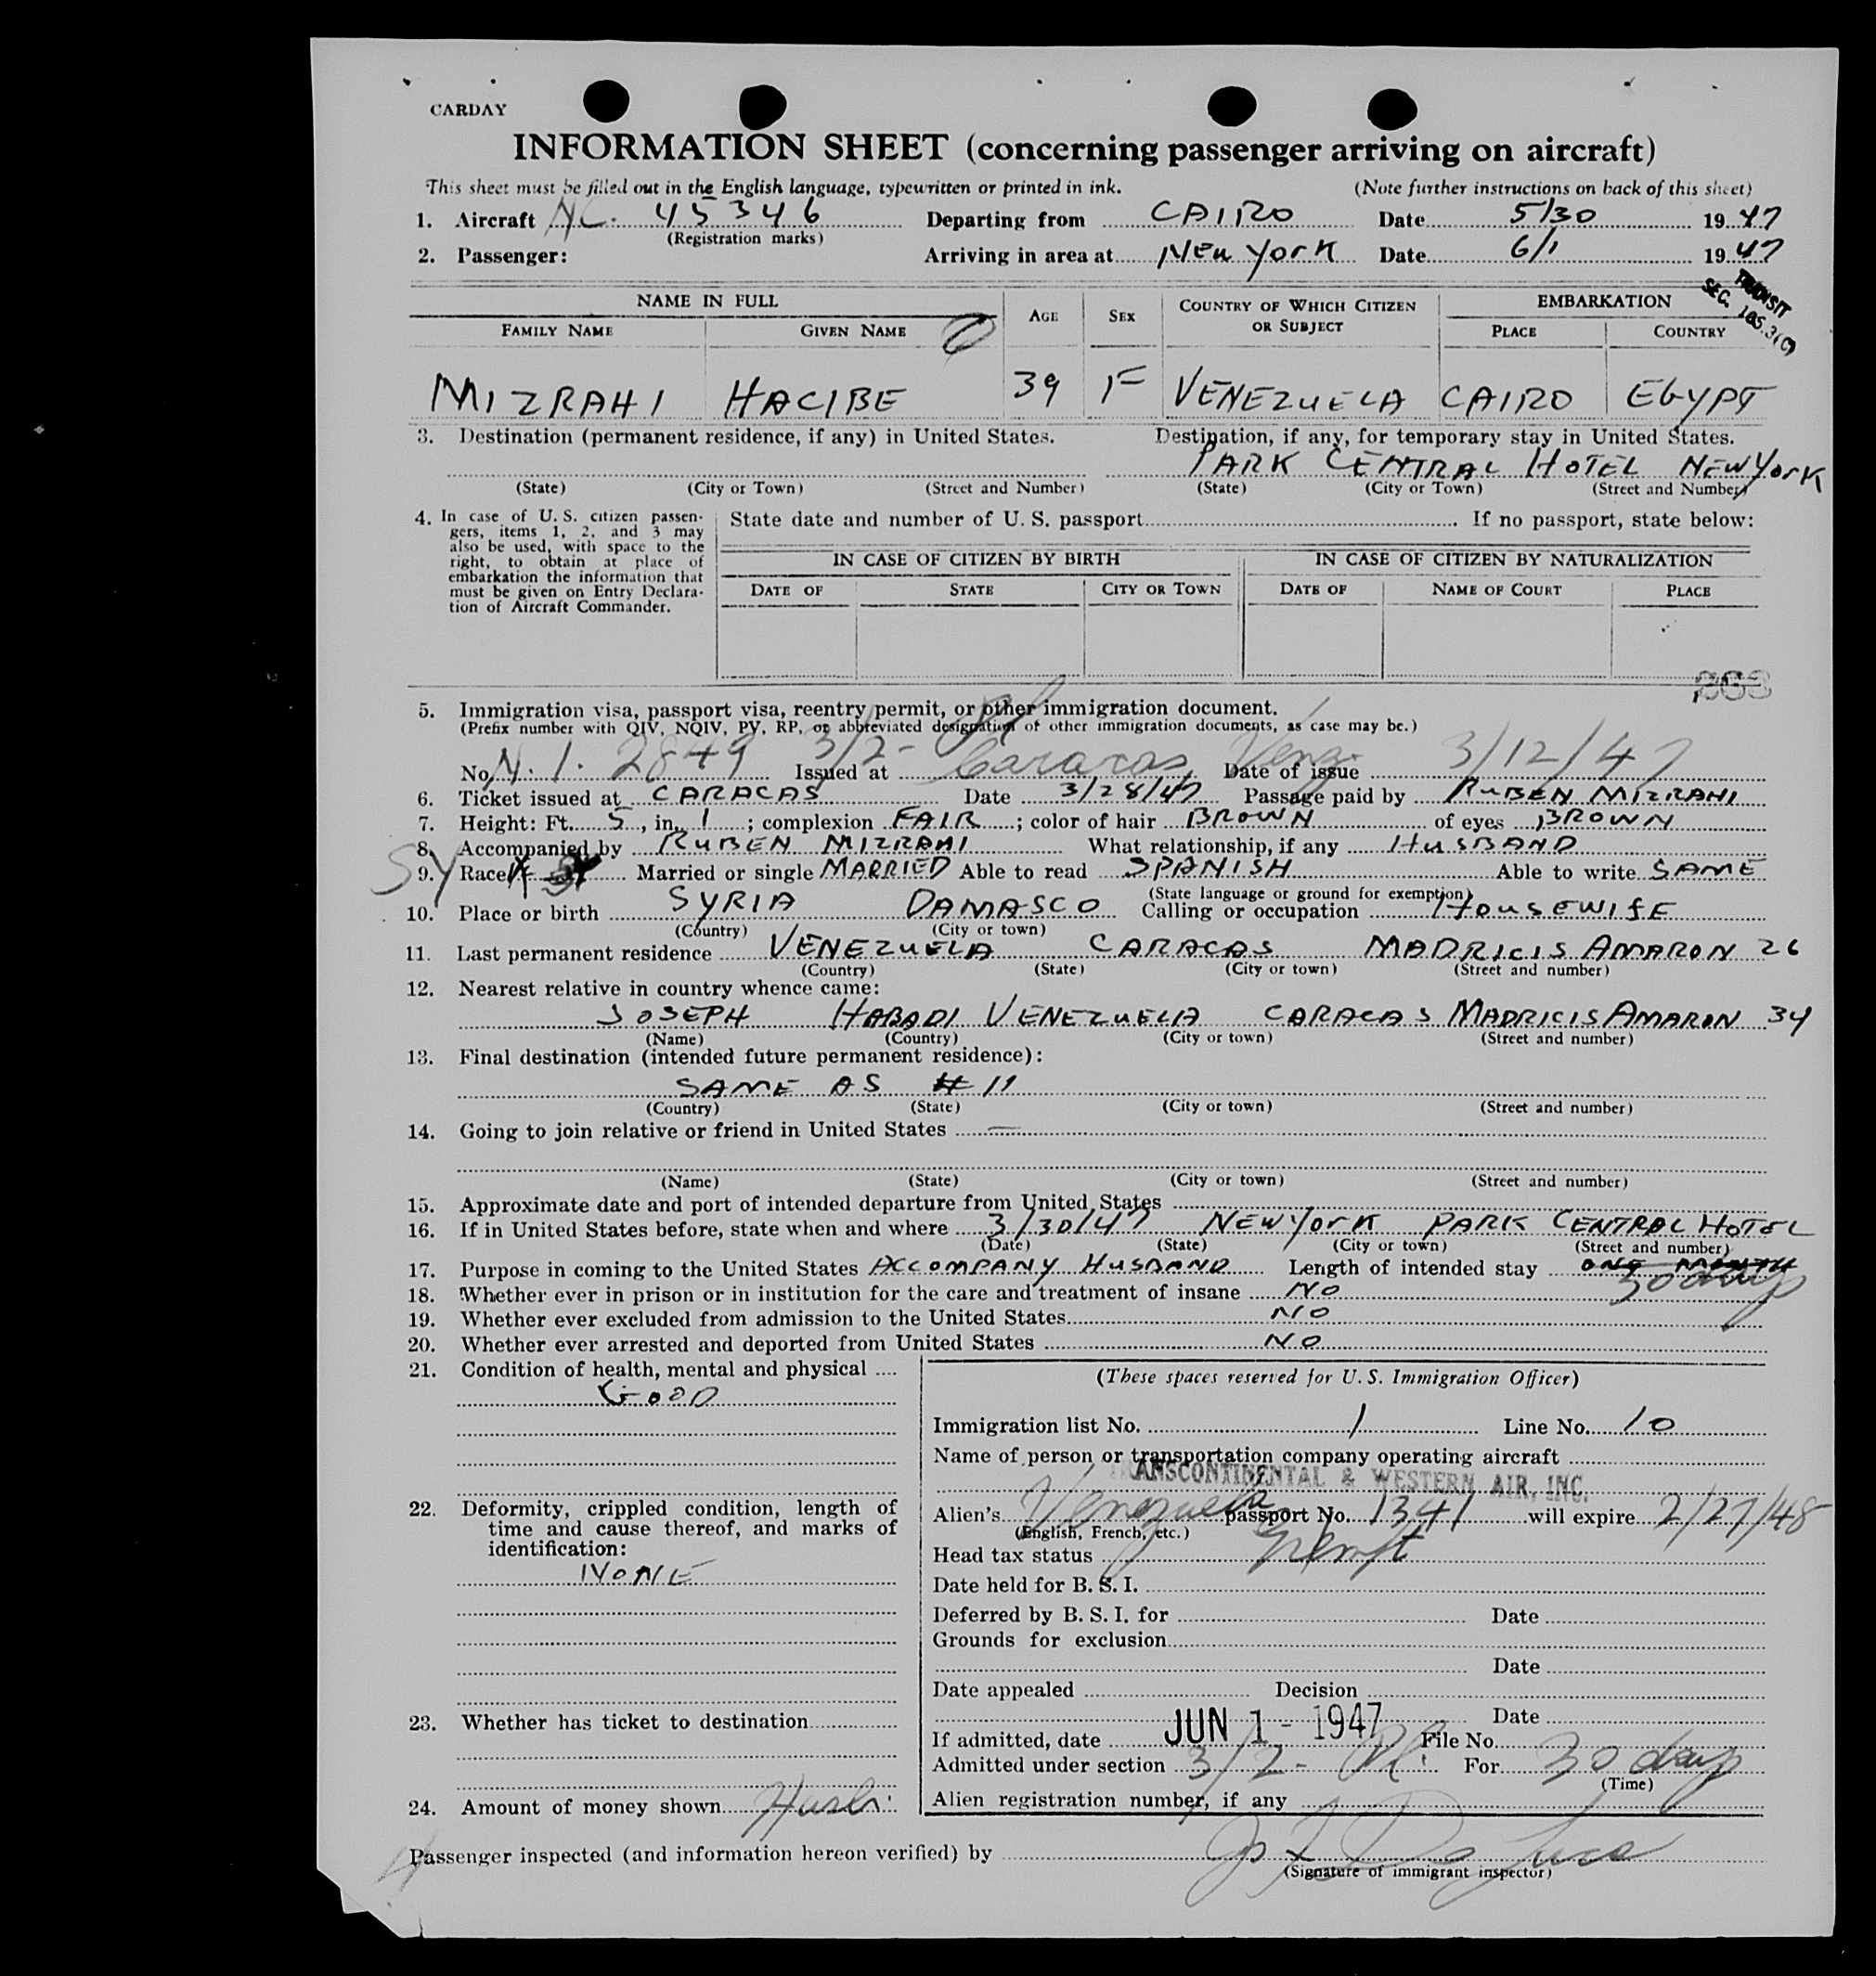 CARDAY
INFORMATION SHEET (concerning passenger arriving on aircraft)
This sheet must be filled out in the English language, typewritten or printed in ink. (Note further instructions on back of this sheet)
1. Aircraft NC. 45346 Departing from CAIRO Date 5/30 1947
(Registration marks)
2. Passenger: Arriving in area at New York Date 6/1 1947
TRANSIT
SEC. 105.3(C)
NAME IN FULL AGE SEX COUNTRY OF WHICH CITIZEN OR SUBJECT EMBARKATION
FAMILY NAME GIVEN NAME PLACE COUNTRY
MIZRAHI HACIBE 39 F VENEZUELA CAIRO EGYPT
3. Destination (permanent residence, if any) in United States. Destination, if any, for temporary stay in United States.
PARK CENTRAL HOTEL NEW York
(State) (City or Town) (Street and Number) (State) (City or Town) (Street and Number)
4. In case of U. S. citizen passengers, items 1, 2, and 3 may also be used, with space to the right, to obtain at place of embarkation the information that must be given on Entry Declaration of Aircraft Commander.
State date and number of U. S. passport. If no passport, state below:
IN CASE OF CITIZEN BY BIRTH IN CASE OF CITIZEN BY NATURALIZATION
DATE OF STATE CITY OR TOWN DATE OF NAME OF COURT PLACE
5. Immigration visa, passport visa, reentry permit, or other immigration document.
(Prefix number with QIV, NQIV, PV, RP, or abbreviated designation of other immigration documents, as case may be.)
3/2-
No. N.I. 2849 Issued at Caracas, Venz. Date of issue 3/12/47
6. Ticket issued at CARACAS Date 3/28/47 Passage paid by RUBEN MIZRAHI
7. Height: Ft. 5, in. 1; complexion FAIR; color of hair BROWN of eyes BROWN
8. Accompanied by RUBEN MIZRAHI What relationship, if any HUSBAND
SY 9. Race Married or single MARRIED Able to read SPANISH Able to write SAME
(State language or ground for exemption)
10. Place or birth SYRIA DAMASCO Calling or occupation HOUSEWIFE
(Country) (City or town)
11. Last permanent residence VENEZUELA CARACAS MADRICIS AMARON 26
(Country) (State) (City or town) (Street and number)
12. Nearest relative in country whence came:
JOSEPH HABADI VENEZUELA CARACAS MADRICIS AMARON 34
(Name) (Country) (City or town) (Street and number)
13. Final destination (intended future permanent residence):
SAME AS # 11
(Country) (State) (City or town) (Street and number)
14. Going to join relative or friend in United States —
(Name) (State) (City or town) (Street and number)
15. Approximate date and port of intended departure from United States
16. If in United States before, state when and where 3/30/47 NEW York PARK CENTRAL HOTEL
(Date) (State) (City or town) (Street and number)
17. Purpose in coming to the United States ACCOMPANY HUSBAND Length of intended stay ONE MONTH
30 days
18. Whether ever in prison or in institution for the care and treatment of insane NO
19. Whether ever excluded from admission to the United States NO
20. Whether ever arrested and deported from United States NO
21. Condition of health, mental and physical
GOOD
(These spaces reserved for U. S. Immigration Officer)
Immigration list No. 1 Line No. 10
Name of person or transportation company operating aircraft
TRANSCONTINENTAL & WESTERN AIR, INC.
22. Deformity, crippled condition, length of time and cause thereof, and marks of identification:
NONE
Alien's Venezuela passport No. 1341 will expire 2/27/48
(English, French, etc.)
Head tax status Exempt
Date held for B. S. I.
Deferred by B. S. I. for Date
Grounds for exclusion
Date
Date appealed Decision
Date
23. Whether has ticket to destination
If admitted, date JUN 1 - 1947 File No.
Admitted under section 3/2- For 30 days
(Time)
24. Amount of money shown Husb.
Alien registration number, if any
Passenger inspected (and information hereon verified) by
(Signature of immigrant inspector)